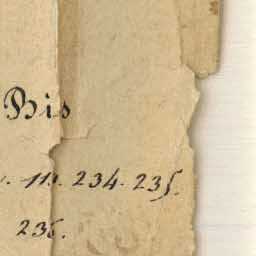 His
111. 234. 235.
236.